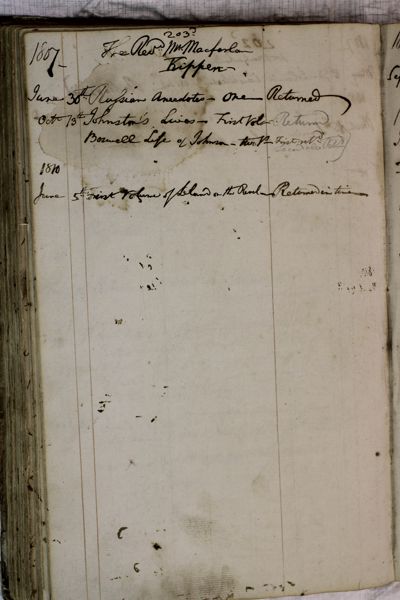 203
1807 The Revd. Mr Macfarlan
Kippen
June 30th Russian Anecdotes - One Returned
Oct 13th Johnston's Lives - First Vol. Returnd
Boswell Life of Johnson - two V. First
1810
June 5th First Volume of Leland on the Revel Returned in time